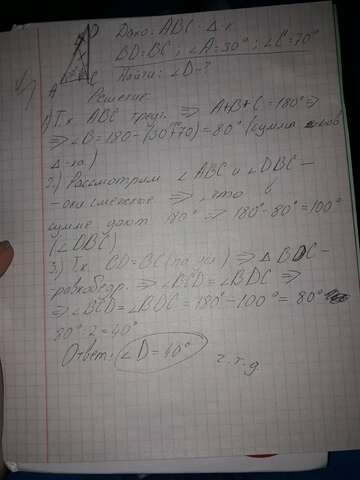 D
Дано: ABC - Δ-к.
BD=BC; ∠A=30°; ∠C=70°
A C
Найти: ∠D-?
Решение:
1) Т.к. ABC треуг. ⇒ A+B+C=180° ⇒
⇒ ∠B=180-(30+70)=80° (сумма углов
Δ-ка.)
2.) Рассмотрим ∠ABC и ∠DBC -
- они смежные ⇒ что в
сумме дают 180° ⇒ 180°-80°=100°
(∠DBC)
3.) Т.к. CD=BC (по усл.) ⇒ Δ BDC -
- равнобедр. ⇒ ∠BCD=∠BDC ⇒
⇒ ∠BCD=∠BDC=180°-100°=80°
80°:2=40°
Ответ: ∠D=40°
ч.т.д.